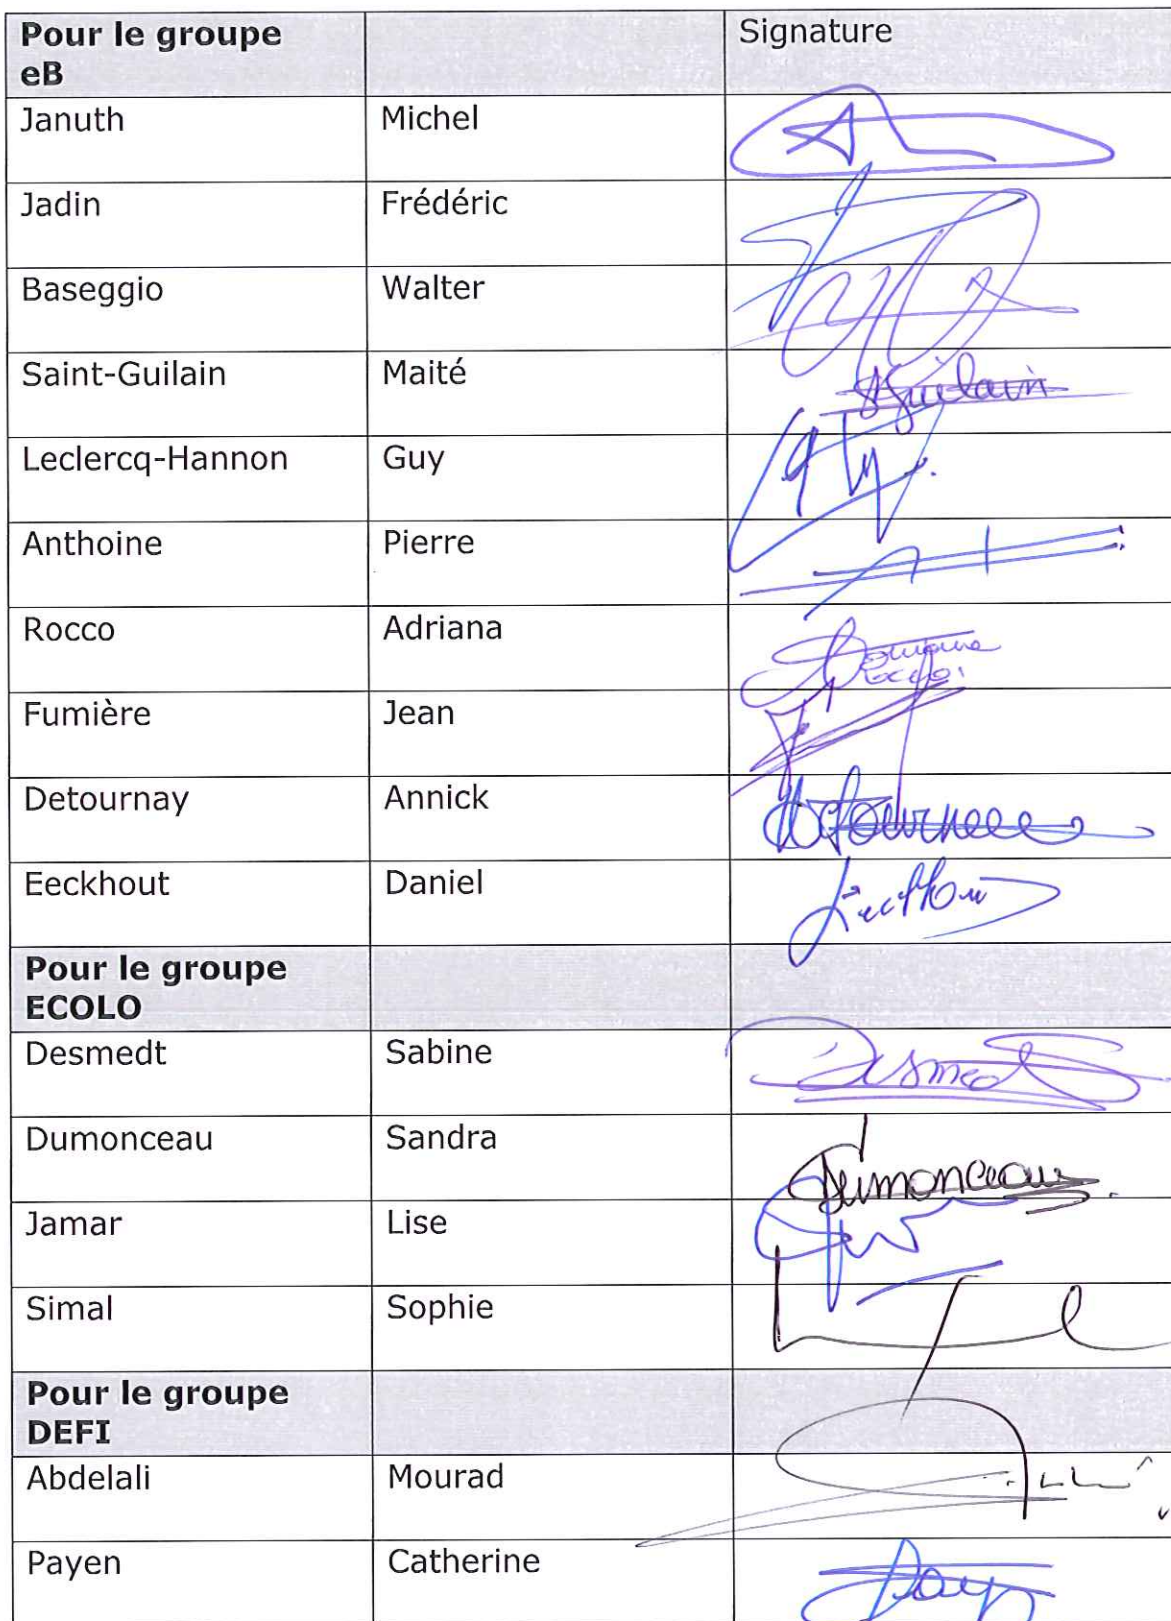 Pour le groupe eB Signature
Januth Michel
Jadin Frédéric
Baseggio Walter
Saint-Guilain Maité
Leclercq-Hannon Guy
Anthoine Pierre
Rocco Adriana
Fumière Jean
Detournay Annick
Eeckhout Daniel
Pour le groupe
ECOLO
Desmedt Sabine Desmedt
Dumonceau Sandra Dumonceau
Jamar Lise
Simal Sophie
Pour le groupe
DEFI
Abdelali Mourad
Payen Catherine